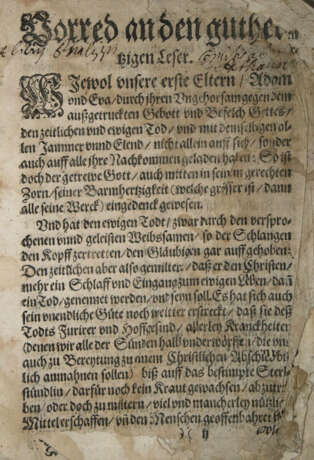 Vorred an den guthe-
tzigen Leser.
WJewol vnsere erste Eltern / Adam
vnd Eva / durch jhren Vngehorsam gegen dem
außgetruckten Gebott vnd Befelch Gottes /
den zeitlichen vnd ewigen Tod / vnd mit demselbigen al-
len Jammer vnnd Elend / nicht allein auff sich / sonder
auch auff alle jhre Nachkommen geladen haben: So ist
doch der getrewe Gott / auch mitten in seinem gerechten
Zorn / seiner Barmhertzigkeit (welche grösser ist / dann
alle seine Werck) eingedenck gewesen.
Vnd hat den ewigen Todt / zwar durch den verspro-
chenen vnnd geleisten Weibssamen / so der Schlangen
den Kopff zertretten / den Gläubigen gar auffgehoben:
Den zeitlichen aber also gemiltert / daß er den Christen /
mehr ein Schlaff vnd Eingang zum ewigen Leben / dañ
ein Tod / genennet werden / vnd seyn soll. Es hat sich auch
sein vnendliche Güte noch weitter erstreckt / daß sie deß
Todts Furirer vnd Hoffgesind / allerley Kranckheiten
(denen wir alle der Sünden halb vnderworffen / die vns
auch zu Bereytung zu einem Christlichen Abschid
lich anmahnen sollen) biß auff das bestimpte Sterb-
stündlin / darfür noch kein Kraut gewachsen / abzutrei-
ben / oder doch zu miltern / viel vnd mancherley nützliche
Mittel erschaffen / vñ den Menschen geoffenbahret
)( ij